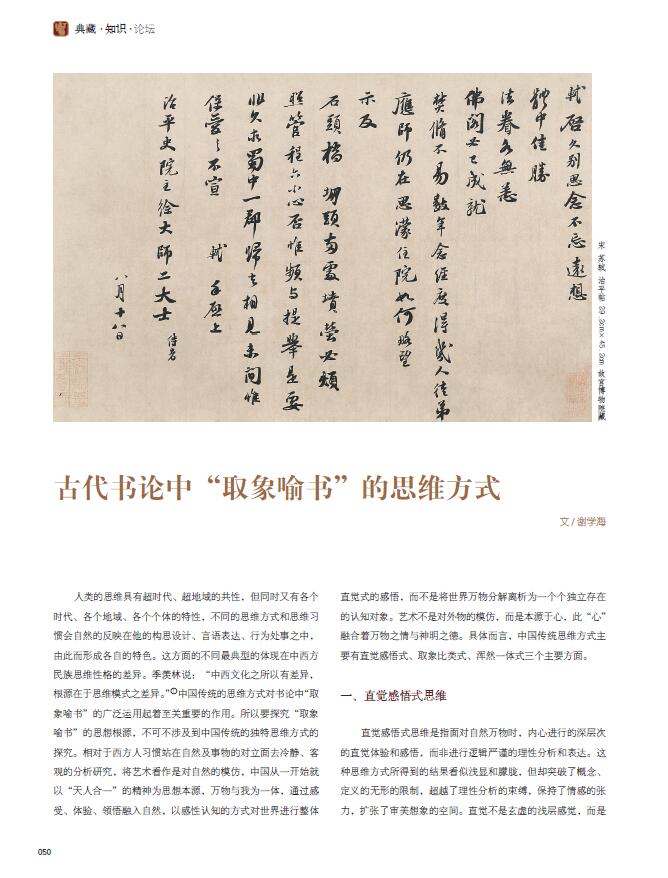 典藏·知识·论坛
轼启久别思念不忘远想
體中佳勝
法眷各無恙
佛閣必已成就
焚脩不易數年念經度得幾人徒弟
應師仍在思濛住院如何略望
示及
石頭橋堋頭兩處墳塋必煩
照管程六小心否惟頻与提舉是要
非久求蜀中一郡歸去相見未間惟
保愛之不宣 軾手啟上
治平史院主徐大師二大士 侍者
八月十八日
宋 苏轼 治平帖 29.2cm×45.2cm 故宫博物院藏
古代书论中“取象喻书”的思维方式
文/谢学海
人类的思维具有超时代、超地域的共性，但同时又有各个
时代、各个地域、各个个体的特性，不同的思维方式和思维习
惯会自然的反映在他的构思设计、言语表达、行为处事之中，
由此而形成各自的特色。这方面的不同最典型的体现在中西方
民族思维性格的差异。季羡林说：“中西文化之所以有差异，
根源在于思维模式之差异。”①中国传统的思维方式对书论中“取
象喻书”的广泛运用起着至关重要的作用。所以要探究“取象
喻书”的思想根源，不可不涉及到中国传统的独特思维方式的
探究。相对于西方人习惯站在自然及事物的对立面去冷静、客
观的分析研究，将艺术看作是对自然的模仿，中国从一开始就
以“天人合一”的精神为思想本源，万物与我为一体，通过感
受、体验、领悟融入自然，以感性认知的方式对世界进行整体
直觉式的感悟，而不是将世界万物分解离析为一个个独立存在
的认知对象。艺术不是对外物的模仿，而是本源于心，此“心”
融合着万物之情与神明之德。具体而言，中国传统思维方式主
要有直觉感悟式、取象比类式、浑然一体式三个主要方面。
一、直觉感悟式思维
直觉感悟式思维是指面对自然万物时，内心进行的深层次
的直觉体验和感悟，而非进行逻辑严谨的理性分析和表达。这
种思维方式所得到的结果看似浅显和朦胧，但却突破了概念、
定义的无形的限制，超越了理性分析的束缚，保持了情感的张
力，扩张了审美想象的空间。直觉不是玄虚的浅层感觉，而是
050